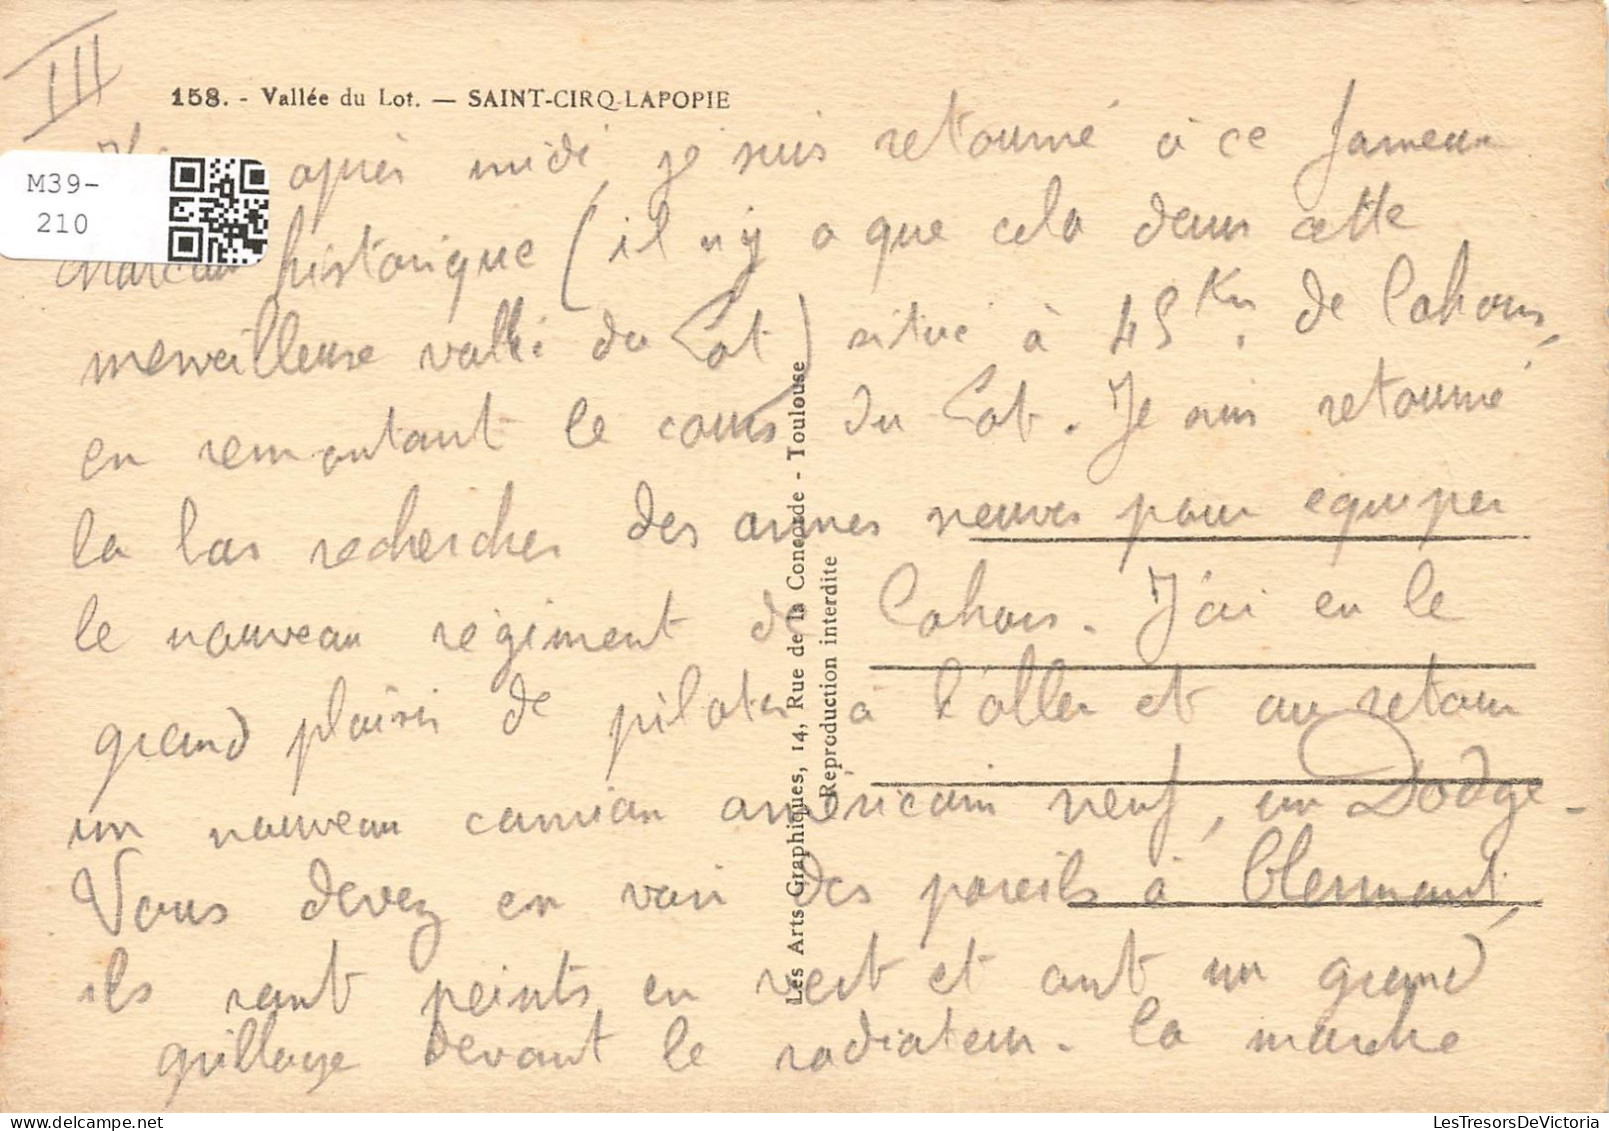 III
158. - Vallée du Lot. — SAINT-CIRQ-LAPOPIE
M39-
210
après midi, je suis retourné à ce fameux
historique (il n'y a que cela dans cette
merveilleuse vallée du Lot) situé à 45 Km. de Cahors,
en remontant le cours du Lot. Je suis retourné
la bas rechercher des armes neuves pour équiper
le nouveau régiment de Cahors. J'ai eu le
grand plaisir de piloter à l'aller et au retour
un nouveau camion américain neuf, un Dodge-
Vous devez en voir des pareils à Clermont,
ils sont peints en vert et ont un grand
grillage devant le radiateur. la marche
Les Arts Graphiques, 14, Rue de la Concorde - Toulouse
Reproduction interdite
LesTresorsDeVictoria.com